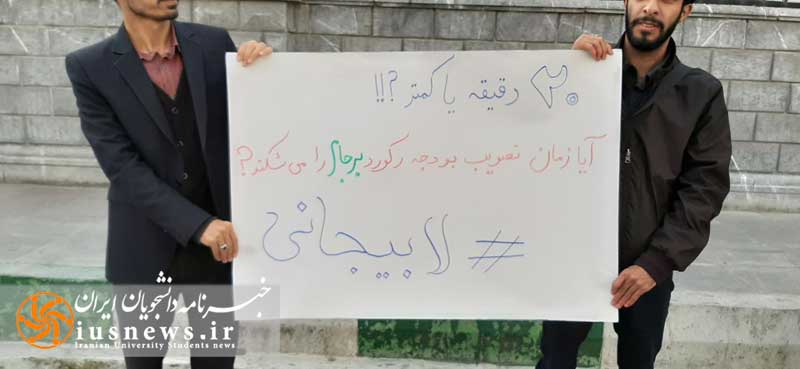 ۲۰ دقیقه یا کمتر ?!!
آیا زمان تصویب بودجه رکورد برجام را می شکند؟
# لابیجانی
خبرنامه دانشجویان ایران
iusnews.ir
Iranian University Students news